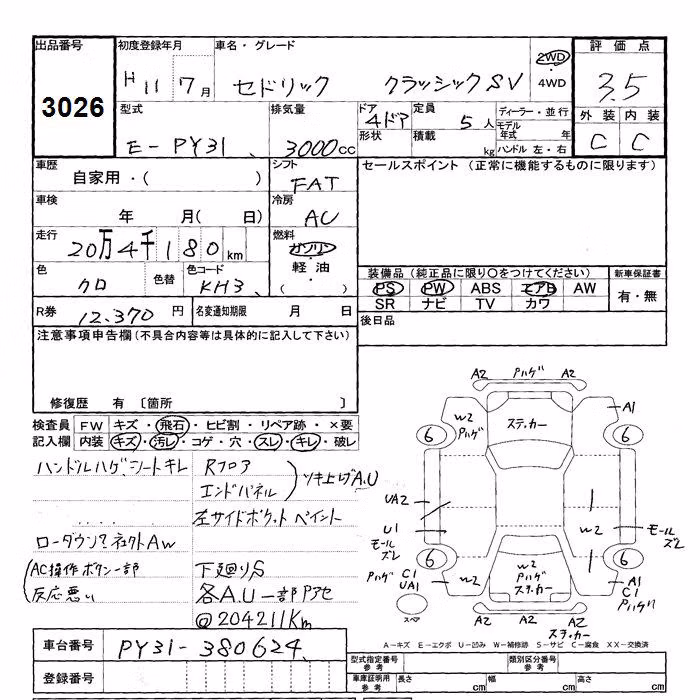 出品番号
3026
初度登録年月 車名・グレード
H 11 7月 セドリック クラッシックSV
2WD
・
4WD
評価点
3.5
外装 内装
C C
型式 排気量
E-PY31 3000cc
ドア 定員 ディーラー・並行
4ドア 5人 モデル年式 年
形状 積載 kg ハンドル 左・右
車歴 シフト
自家用・( ) FAT
車検 冷房
年 月( 日) AC
走行 燃料
20万4千180km ガソリン
軽油
( )
色 色替 色コード
クロ KH3
R券 12.370円 名変通知期限 月 日
セールスポイント (正常に機能するものに限ります)
装備品(純正品に限り〇をつけてください) 新車保証書
PS PW ABS エアB AW 有・無
SR ナビ TV カワ
後日品
注意事項申告欄(不具合内容等は具体的に記入して下さい)
修復歴 有 〔箇所 〕
検査員 FW キズ・飛石・ヒビ割・リペア跡・×要
記入欄 内装 キズ・汚レ・コゲ・穴・スレ・キレ・破レ
ハンドルハゲ、シートキレ
Rフロア
エンドパネル
ツキ上ゲA.U
左サイドポケット ペイント
ローダウン?社外AW
AC操作ボタン一部
反応悪い
下廻りS
各A.U一部Pアセ
@204211Km
A2 Pハゲ A2
ステッカー
W2
Pハゲ
A1
6 6
UA2
U1
モール
ズレ
W2
モール
ズレ
6 6
Pハゲ C1
UA1
W2
W2
Pハゲ
ステッカー
A1
C1
Pハゲ
スペア
A2 A2 A2
ステッカー
A-キズ E-エクボ U-凹み W-補修跡 S-サビ C-腐食 XX-交換済
車台番号 PY31-380624
登録番号
型式指定番号
参考
類別区分番号
参考
車庫証明用
参考
長さ cm 幅 cm 高さ cm